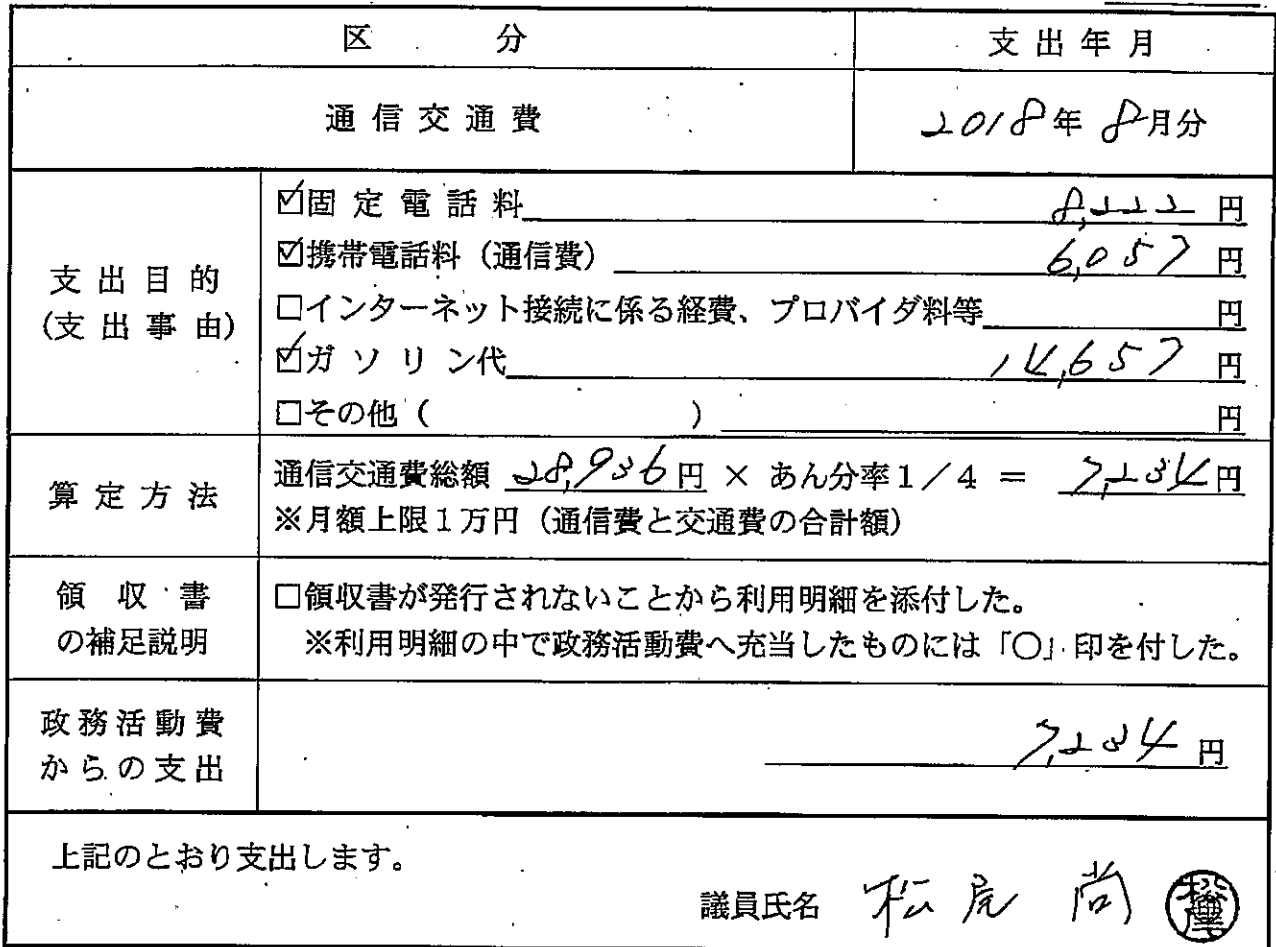 区分 支出年月
通信交通費 2018年 8月分
支出目的
(支出事由)
☑固定電話料 8,222 円
☑携帯電話料（通信費） 6,057 円
□インターネット接続に係る経費、プロバイダ料等 円
☑ガソリン代 14,657 円
□その他（ ） 円
算定方法
通信交通費総額 28,936円 × あん分率1／4 ＝ 7,234円
※月額上限1万円（通信費と交通費の合計額）
領収書
の補足説明
□領収書が発行されないことから利用明細を添付した。
※利用明細の中で政務活動費へ充当したものには「〇」印を付した。
政務活動費
からの支出
7,234 円
上記のとおり支出します。
議員氏名 松尾 尚